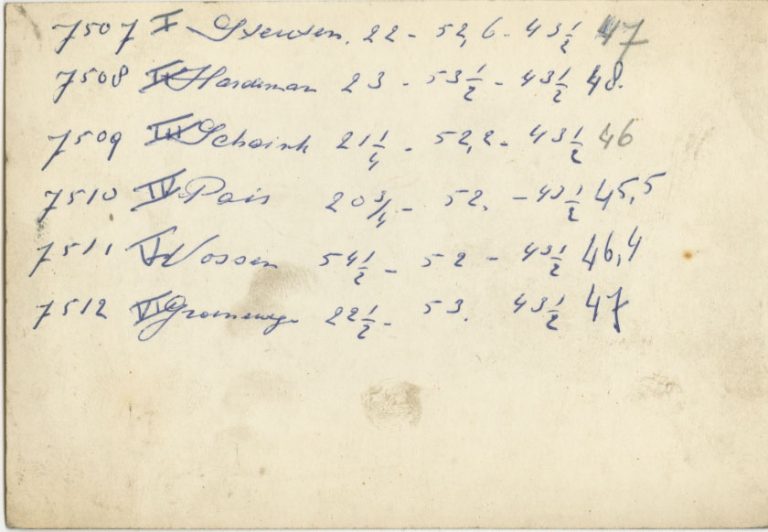 7507 I Steusen. 22 - 52,6 - 43 1/2 47
7508 II Hardeman 23 - 53 1/2 - 43 1/2 48.
7509 III Schoink 21 1/4 - 52,2 - 43 1/2 46
7510 IV Pais 20 3/4 - 52. - 43 1/2 45,5
7511 V Vossen 54 1/2 - 52 - 43 1/2 46,4
7512 VI 22 1/2 - 53. 43 1/2 47